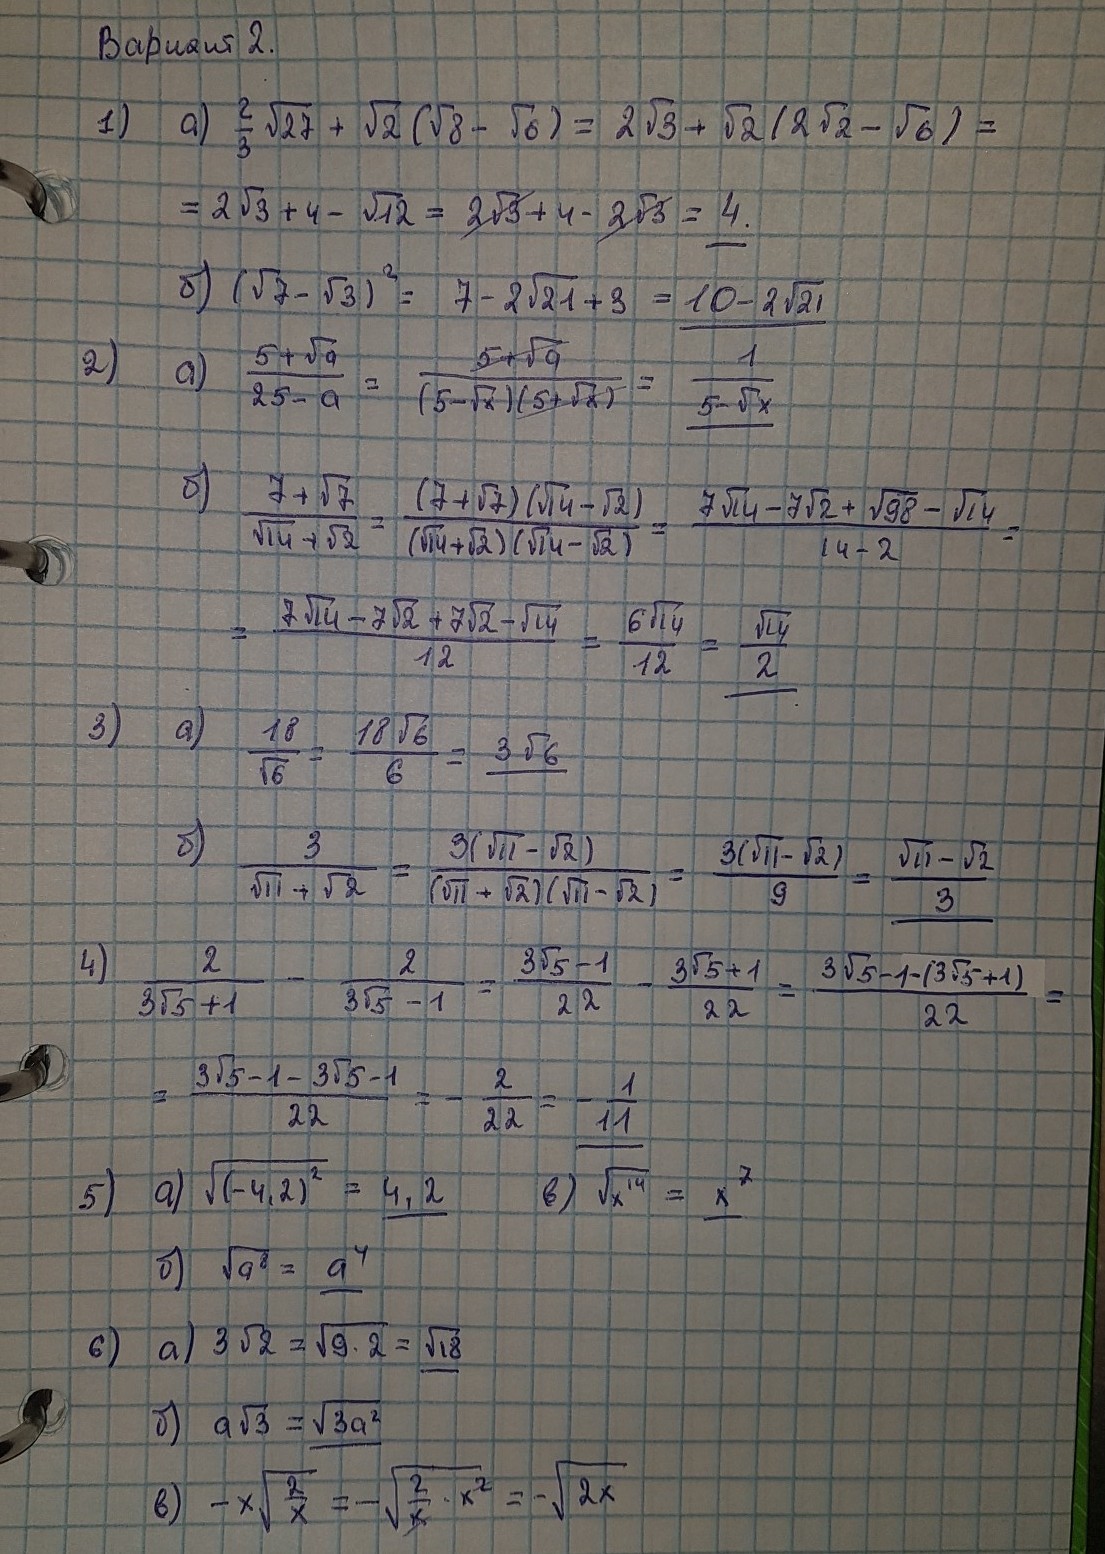 Вариант 2.
1) а) 2/3 √27 + √2 (√8 − √6) = 2√3 + √2 (2√2 − √6) =
= 2√3 + 4 − √12 = 2√3 + 4 − 2√3 = 4.
б) (√7 − √3)² = 7 − 2√21 + 3 = 10 − 2√21
2) а) (5+√a)/(25−a) = (5+√a)/((5−√x)(5+√x)) = 1/(5−√x)
б) (7+√7)/(√14+√2) = ((7+√7)(√14−√2))/((√14+√2)(√14−√2)) = (7√14−7√2+√98−√14)/(14−2) =
= (7√14−7√2+7√2−√14)/12 = 6√14/12 = √14/2
3) а) 18/√6 = 18√6/6 = 3√6
б) 3/(√11+√2) = 3(√11−√2)/((√11+√2)(√11−√2)) = 3(√11−√2)/9 = (√11−√2)/3
4) 2/(3√5+1) − 2/(3√5−1) = (3√5−1)/22 − (3√5+1)/22 = (3√5−1−(3√5+1))/22 =
= (3√5−1−3√5−1)/22 = −2/22 = −1/11
5) а) √(−4,2)² = 4,2 в) √x¹⁴ = x⁷
б) √a⁸ = a⁴
6) а) 3√2 = √9·2 = √18
б) a√3 = √3a²
в) −x√(2/x) = −√(2/x · x²) = −√2x